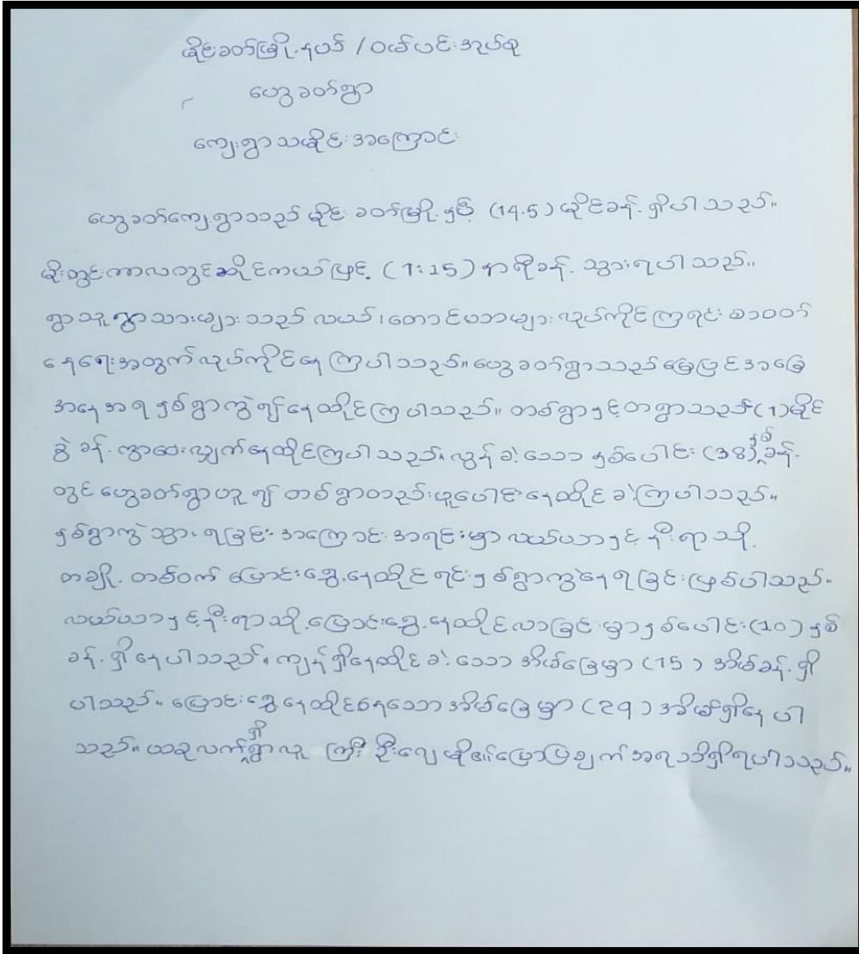 မိုင်းခတ်မြို့နယ် / ဝမ်ပင်းအုပ်စု
ဟွေ့ခတ်ရွာ
ကျေးရွာသမိုင်းအကြောင်း
ဟွေ့ခတ်ကျေးရွာသည် မိုင်းခတ်မြို့နှင့် (14.5) မိုင်ခန့်ရှိပါသည်။
မိုးတွင်းကာလတွင်ဆိုင်ကယ်ဖြင့် (1:15) နာရီခန့် သွားရပါသည်။
ရွာသူရွာသားများသည် လယ်၊တောင်ယာများလုပ်ကိုင်ကြရင်း စားဝတ်
နေရေးအတွက်လုပ်ကိုင်နေကြပါသည်။ဟွေ့ခတ်ရွာသည်မြေပြင်အခြေ
အနေအရနှစ်ရွာကွဲ၍နေထိုင်ကြပါသည်။ တစ်ရွာနှင့်တရွာသည်(1)မိုင်
စွဲခန့်ကွာဝေးလျှက်နေထိုင်ကြပါသည်။လွန်ခဲ့သော နှစ်ပေါင်း (38)နှစ်ခန့်
တွင်ဟွေ့ခတ်ရွာဟူ၍ တစ်ရွာတည်းစုပေါင်းနေထိုင်ခဲ့ကြပါသည်။
နှစ်ရွာကွဲသွားရခြင်းအကြောင်းအရင်းမှာလယ်ယာနှင့်နီးရာသို့
တချို့တစ်ဝက် ပြောင်းရွှေ့နေထိုင်ရင်းနှစ်ရွာကွဲနေရခြင်းဖြစ်ပါသည်။
လယ်ယာနှင့်နီးရာသို့ပြောင်းရွှေ့နေထိုင်လာခြင်းမှာနှစ်ပေါင်း(20)နှစ်
ခန့်ရှိနေပါသည်။ကျန်ရှိနေထိုင်ခဲ့သော အိမ်ခြေမှာ (15) အိမ်ခန့်ရှိ
ပါသည်။ ပြောင်းရွှေ့နေထိုင်နေသောအိမ်ခြေမှာ (29) အိမ်ရှိနေပါ
သည်။ ယခုလက်ရှိရွာလူကြီး ဦးလေမိုး၏ပြောပြချက်အရသိရှိရပါသည်။